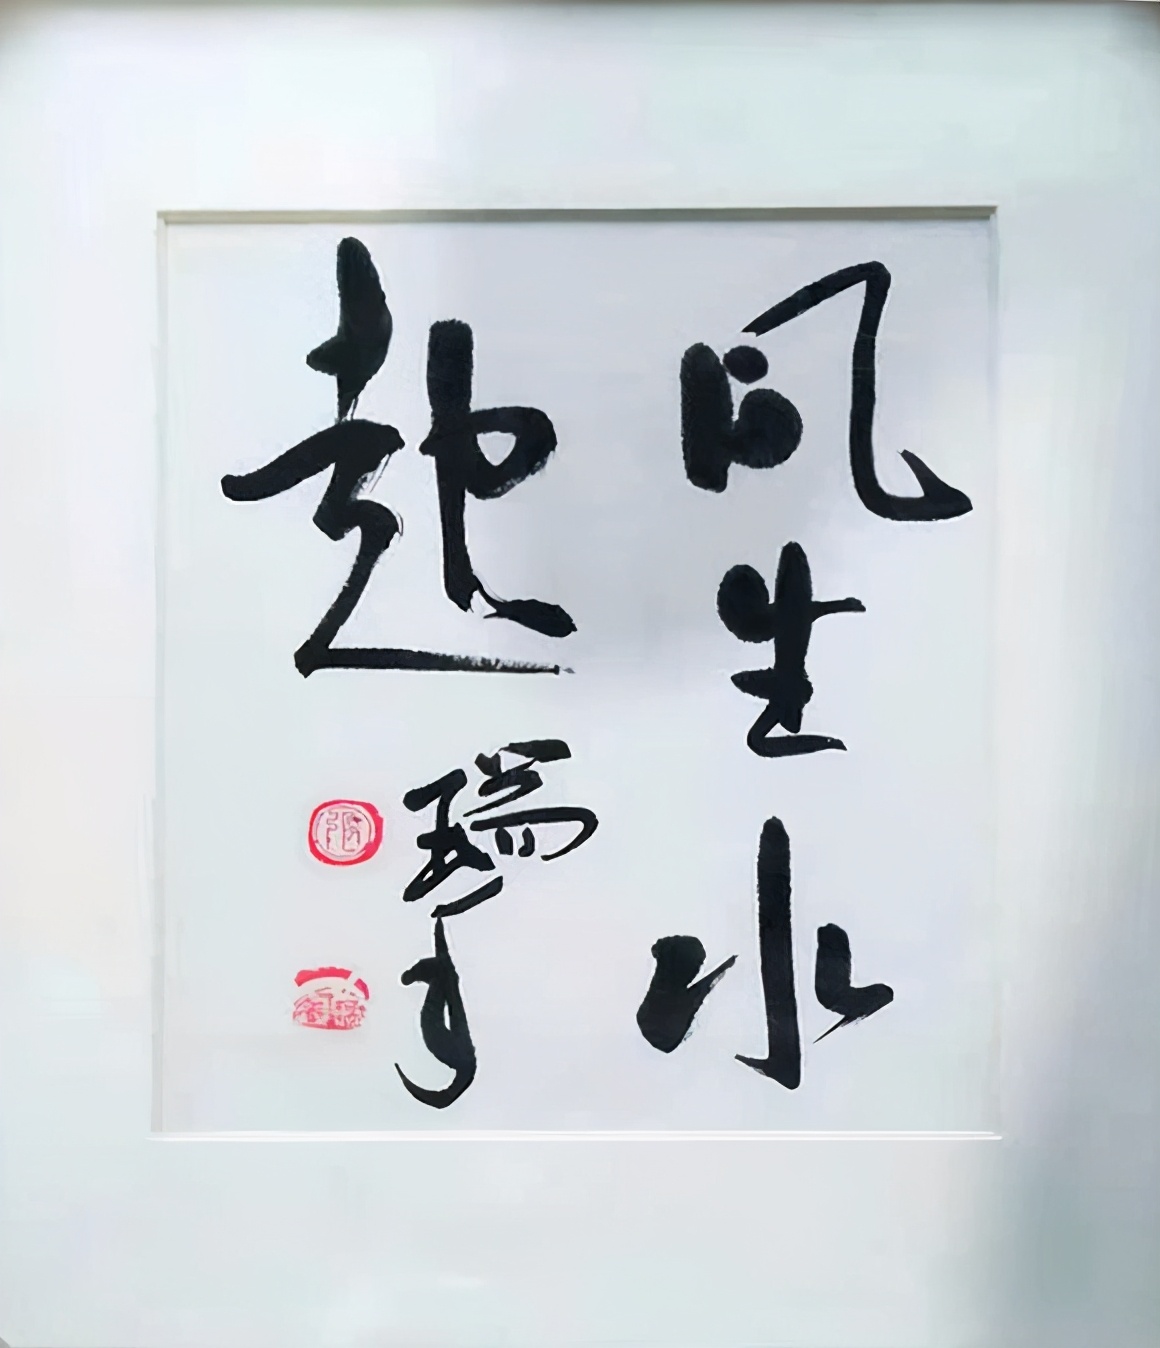 风生水
起
瑞军